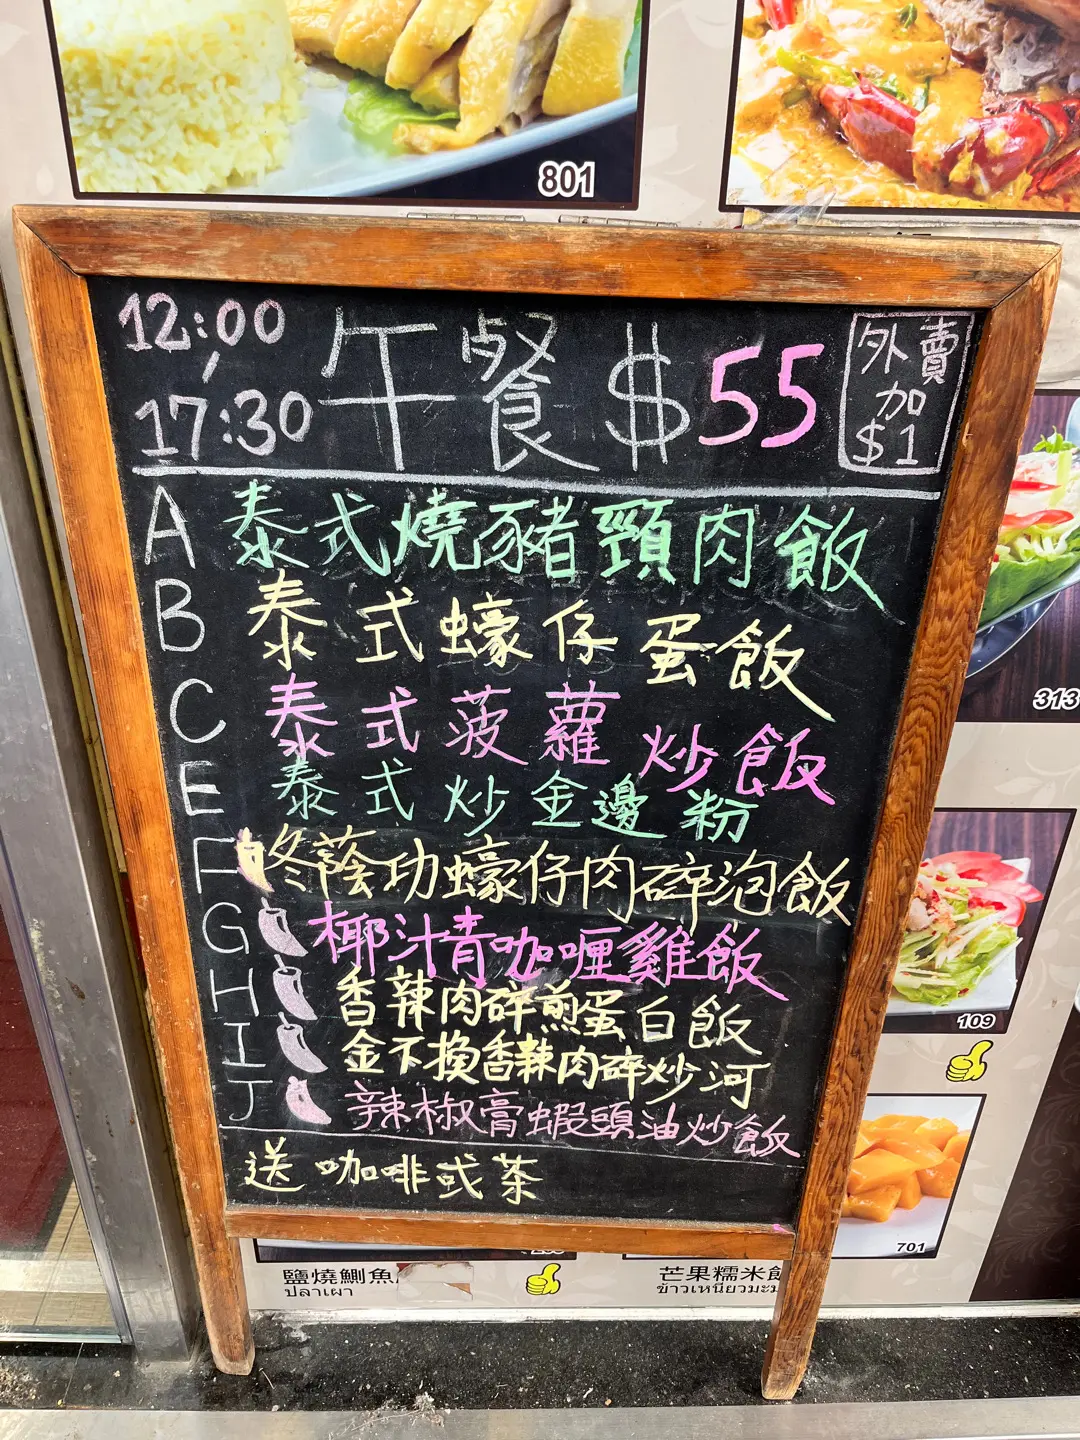 801
12:00
17:30
午餐 $55
外賣
加
$1
A 泰式燒豬頸肉飯
B 泰式蠔仔蛋飯
C 泰式菠蘿炒飯
E 泰式炒金邊粉
F 冬蔭功蠔仔肉碎泡飯
G 椰汁青咖喱雞飯
H 香辣肉碎煎蛋白飯
I 金不換香辣肉碎炒河
J 辣椒膏蝦頭油炒飯
送咖啡或茶
313
109
701
鹽燒鯏魚
ปลาเผา
芒果糯米
ข้าวเหนียวมะม